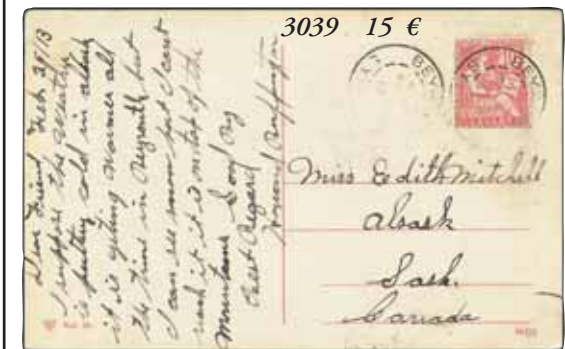 3039 15 €
Dear Friend Feb 3/13
I suppose the weather
is pretty cold in alsask
it is getting warmer all
the time in Beyrouth but
I can see snow but I cant
reach it it is on top of the
mountains
Best Regard
BEY
BEY
Miss Edith Mitchell
alsask
Sask.
Canada